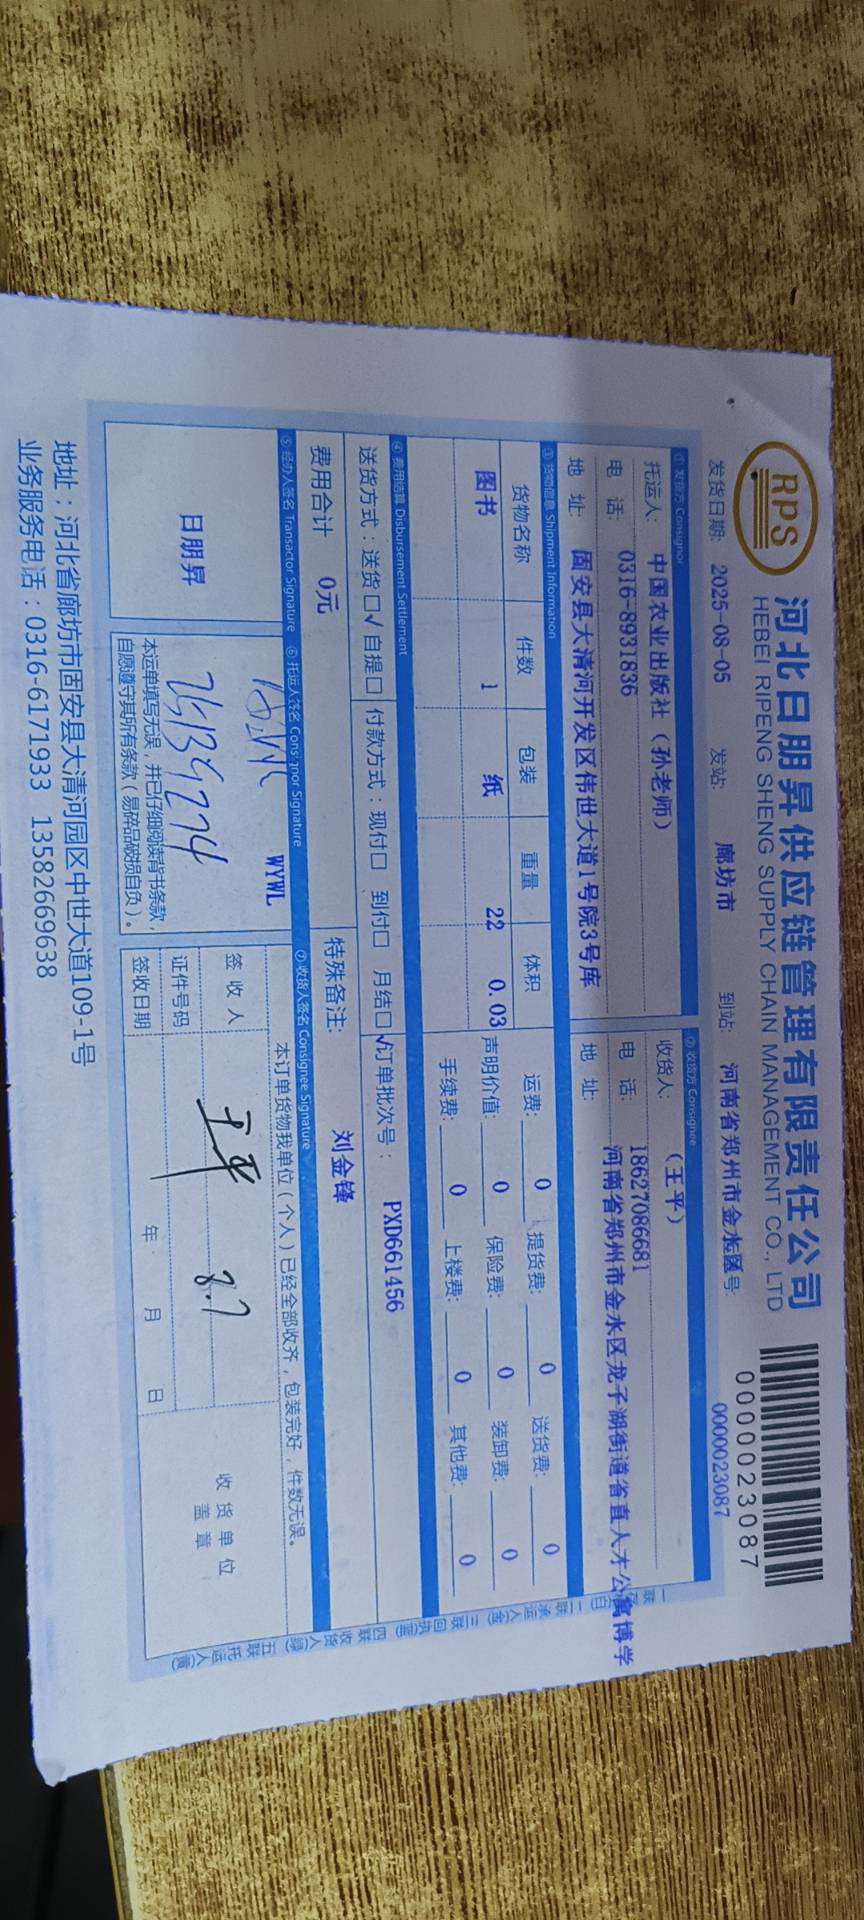 RPS
河北日朋昇供应链管理有限责任公司
HEBEI RIPENG SHENG SUPPLY CHAIN MANAGEMENT CO., LTD
0000023087
发货日期: 2025-08-05 发站: 廊坊市 到站: 河南省郑州市金水区 号 0000023087
① 发货方 Consignor ② 收货方 Consignee
托运人: 中国农业出版社（孙老师） 收货人: （王平）
电 话: 0316-8931836 电 话: 18627086681
地 址: 固安县大清河开发区伟世大道1号院3号库 地 址: 河南省郑州市金水区龙子湖街道省直人才公寓博学
③ 货物信息 Shipment Information
货物名称 件数 包装 重量 体积 运费: 0 提货费: 0 送货费: 0
图书 1 纸 22 0.03 声明价值: 0 保险费: 0 装卸费: 0
手续费: 0 上楼费: 0 其他费: 0
④ 费用结算 Disbursement Settlement
送货方式：送货□√ 自提□ 付款方式：现付□ 到付□ 月结□√ 订单批次号： PXD661456
费用合计 0元 特殊备注: 刘金锋
⑤ 经办人签名 Transactor Signature ⑥ 托运人签名 Consignor Signature ⑦ 收货人签名 Consignee Signature
日朋昇
WYWL
本运单填写无误，并已仔细阅读背书条款，
自愿遵守其所有条款（易碎品破损自负）。
本订单货物我单位（个人）已经全部收齐，包装完好，件数无误。
签 收 人 王平 8.7
证件号码
签收日期 年 月 日
收 货 单 位
盖 章
地址：河北省廊坊市固安县大清河园区中世大道109-1号
业务服务电话：0316-6171933 13582669638